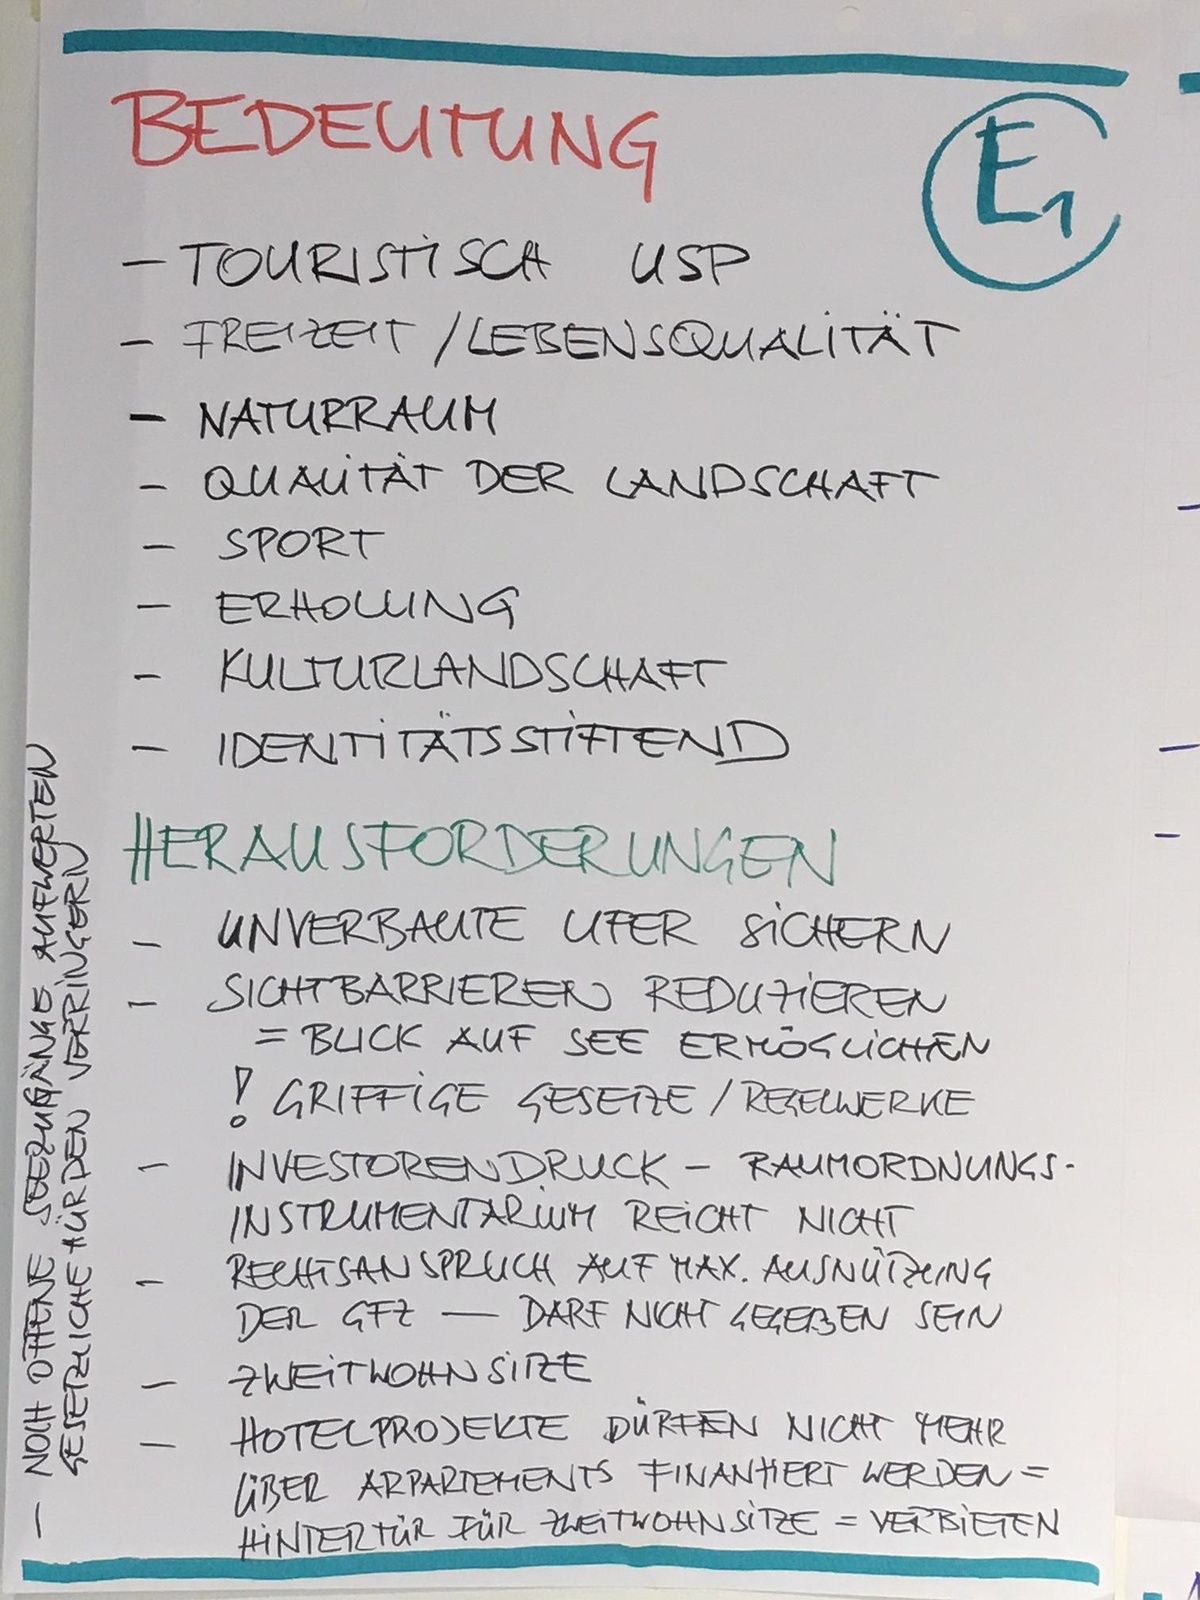 BEDEUTUNG
E1
– TOURISTISCH USP
– FREIZEIT / LEBENSQUALITÄT
– NATURRAUM
– QUALITÄT DER LANDSCHAFT
– SPORT
– ERHOLUNG
– KULTURLANDSCHAFT
– IDENTITÄTSSTIFTEND
HERAUSFORDERUNGEN
– UNVERBAUTE UFER SICHERN
– SICHTBARRIEREN REDUZIEREN
= BLICK AUF SEE ERMÖGLICHEN
! GRIFFIGE GESETZE / REGELWERKE
– INVESTORENDRUCK – RAUMORDNUNGS-
INSTRUMENTARIUM REICHT NICHT
– RECHTSANSPRUCH AUF MAX. AUSNÜTZUNG
DER GFZ — DARF NICHT GEGEBEN SEIN
– ZWEITWOHNSITZE
– HOTELPROJEKTE DÜRFEN NICHT MEHR
ÜBER ARPARTEMENTS FINANZIERT WERDEN =
HINTERTÜR FÜR ZWEITWOHNSITZE = VERBIETEN
– NOCH OFFENE SEEZUGÄNGE AUFWERTEN
GESETZLICHE HÜRDEN VERRINGERN